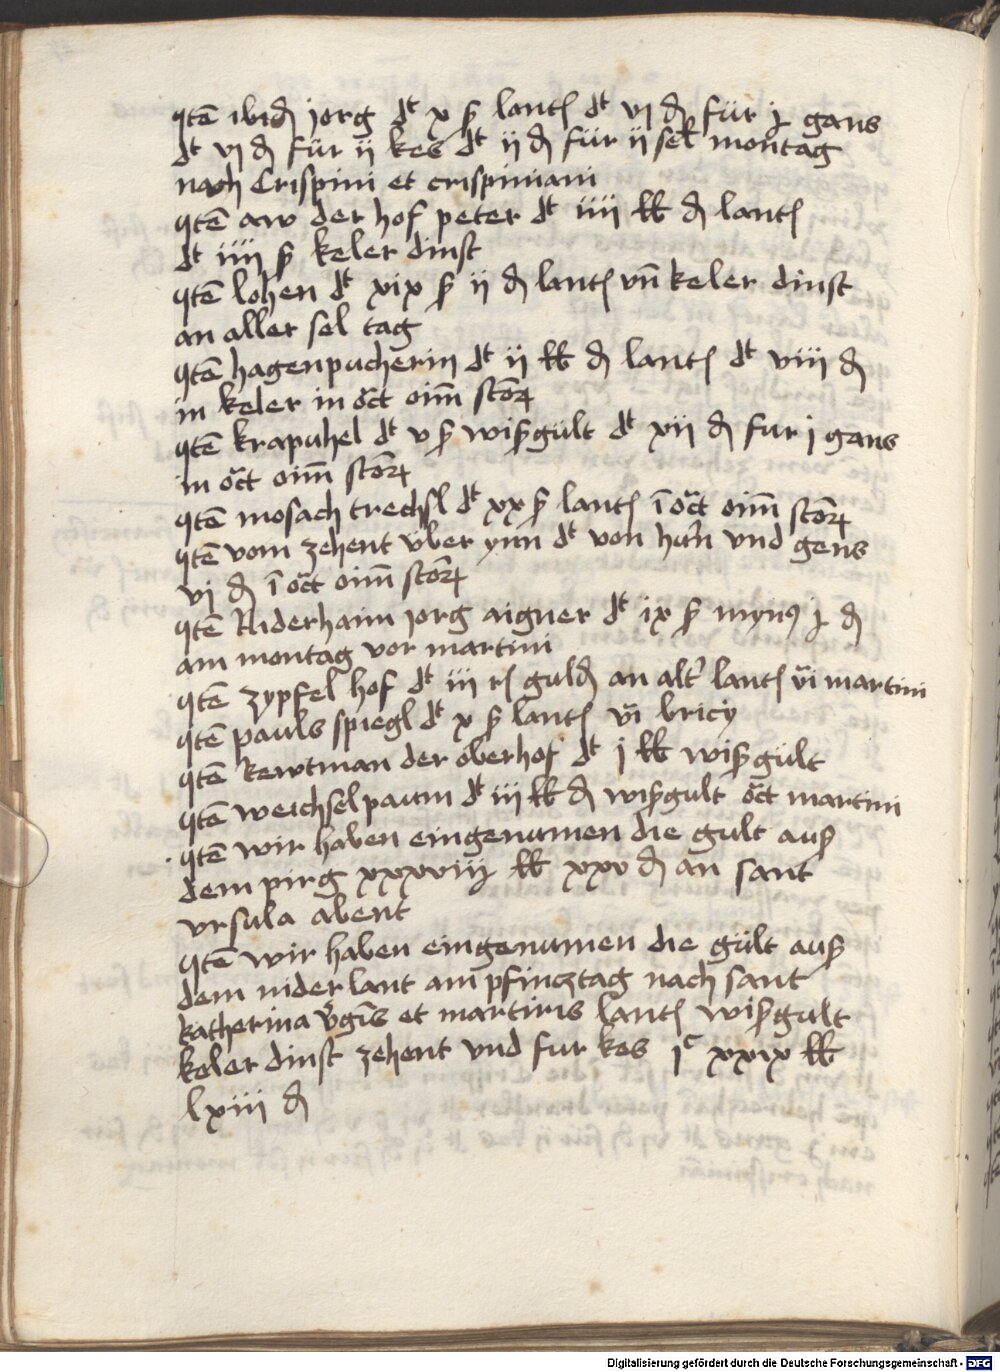 Itē ibid jorg dt x ß lantß dt vj ₰ für j gans
dt vj ₰ für ij kes dt ij ₰ für ij sek montag
nach Crispini et crispiniani
Itē aw der hof peter dt iiij lb ₰ lantß
dt iiij ß keler dinst
Itē lohen dt xix ß ij ₰ lantß vn̄ keler dinst
an aller sel tag
Itē hagenpucherin dt ij lb ₰ lantß dt viii ₰
in keler in oct oim̄ scōꝝ
Itē krapuhel dt v ß wißgült dt xii ₰ fur j gans
in oct oim̄ scōꝝ
Itē mosach trechsl dt xx ß lantß ī oct oim̄ scōꝝ
Itē vom zehent vber ynn dt von hūn vnd gens
vj ₰ ī oct oim̄ scōꝝ
Itē Niderhaim jorg aigner dt ix ß mynꝯ j ₰
am montag vor martini
Itē zypfel hof dt iii rß guld an alt lantß vi martini
Itē pauls spiegl dt x ß lantß vi bricy
Itē kewtman der oberhof dt j lb wißgült
Itē weichselpaum dt iij lb ₰ wißgult oct martini
Itē wir haben eingenumen die gult auß
dem pirg xxxviij lb xxv ₰ an sant
vrsula abent
Itē wir haben eingenumen die gült auß
dem niderlant am pfincztag nach sant
katherina v̄gīs et martiris lantß wißgult
keler dinst zehent vnd fur kes jᶜ xxix lb
lxiii ₰
Digitalisierung gefördert durch die Deutsche Forschungsgemeinschaft - DFG